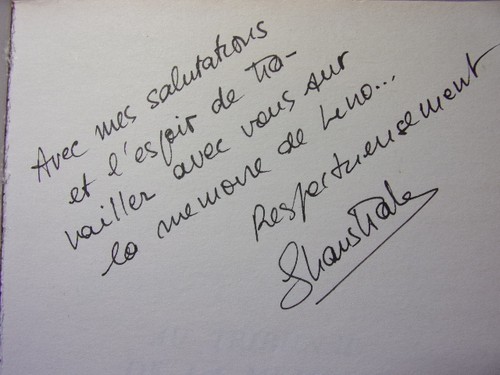 Avec mes salutations
et l'espoir de tra-
vailler avec vous sur
la memoire de Leno...
Respectueusement